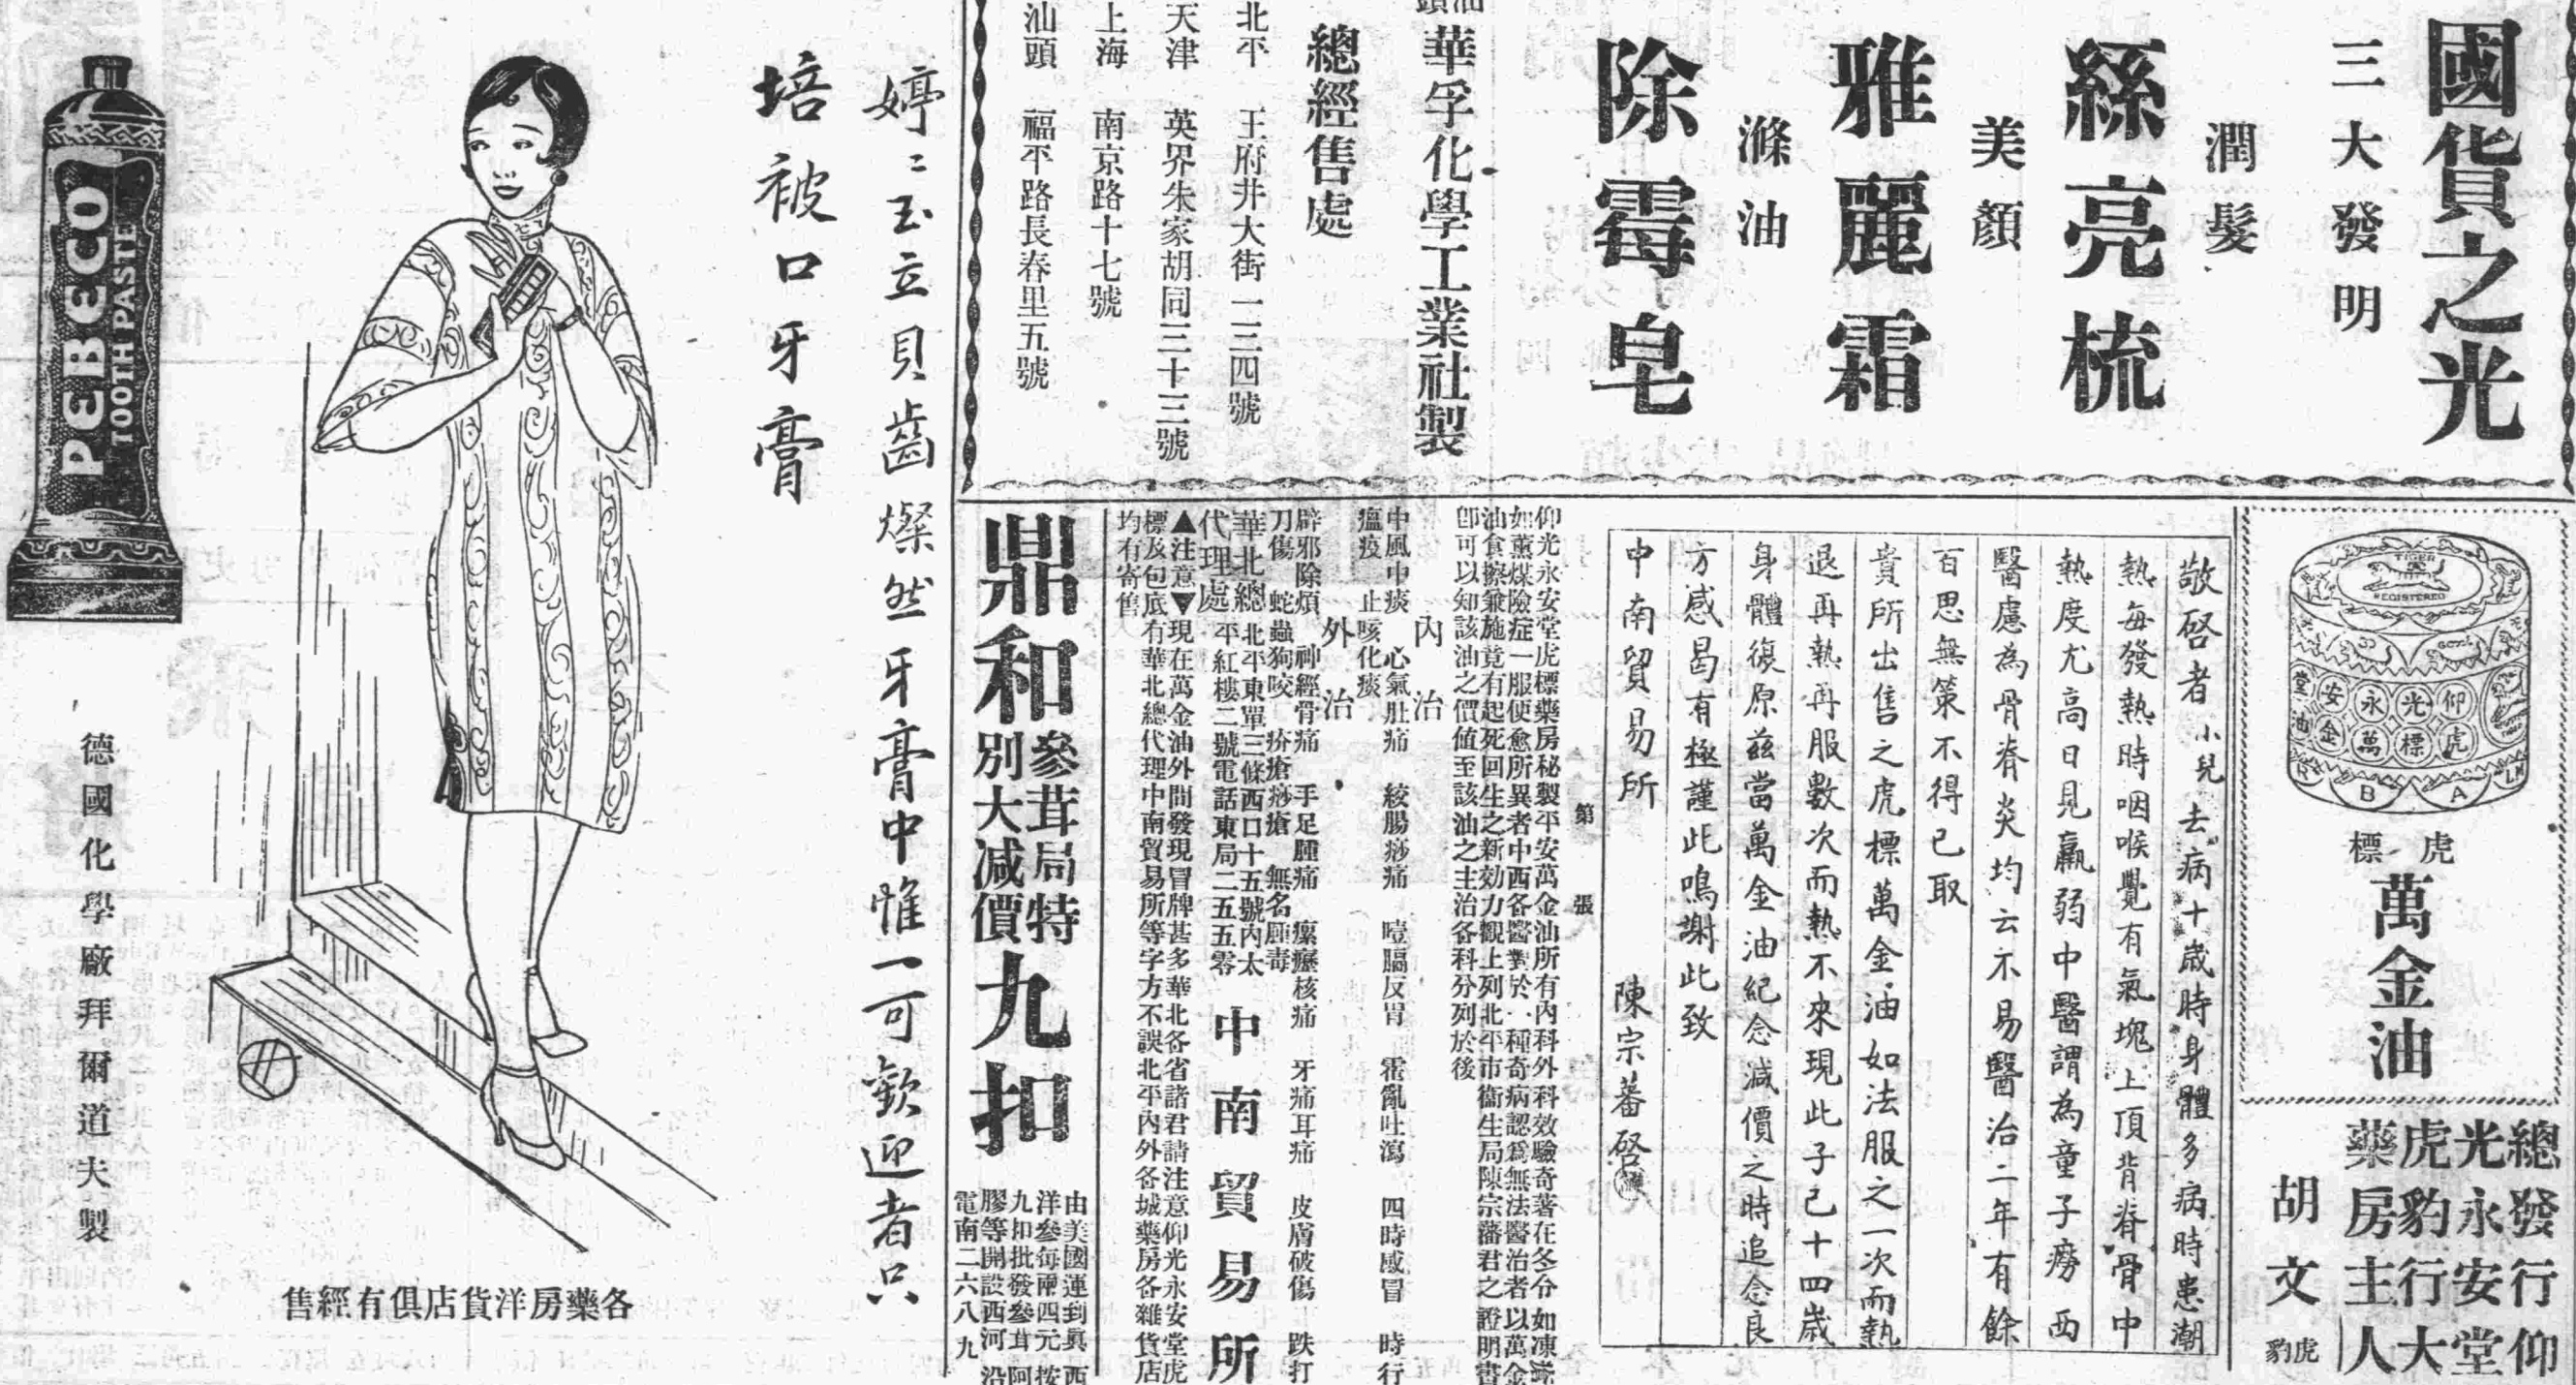 國貨之光
三大發明
潤髮
絲亮梳
美顏
雅麗霜
滌油
除霉皂
華孚化學工業社製
總經售處
北平 王府井大街一三四號
天津 英界朱家胡同三十三號
上海 南京路十七號
汕頭 福平路長春里五號
婷〻玉立貝齒燦然牙膏中惟一可歡迎者只
培被口牙膏
PEBECO
TOOTH PASTE
德國化學廠拜爾道夫製
各藥房洋貨店俱有經售
TIGER
REGISTERED
仰光永安堂
虎標萬金油
虎標
萬金油
總發行仰
光永安堂
虎豹行大
藥房主人
胡文虎豹
敬啓者小兒去病十歲時身體多病時患潮
熱每發熱時咽喉覺有氣塊上頂背脊骨中
熱度尤高日見羸弱中醫謂為童子癆西
醫慮為骨脊炎均云不易醫治二年有餘
百思無策不得已取
貴所出售之虎標萬金油如法服之一次而熱
退再熱再服數次而熱不來現此子已十四歲
身體復原茲當萬金油紀念減價之時追念良
方感曷有極謹此鳴謝此致
中南貿易所 陳宗蕃啓
第 張
仰光永安堂虎標藥房秘製平安萬金油所有內科外科效驗奇著在冬令如凍瘡
如薰煤險症一服便愈所異者中西各醫對於一種奇病認爲無法醫治者以萬金
油食擦兼施竟有起死回生之新効力觀上列北平市衞生局陳宗藩君之證明書
卽可以知該油之價值至該油之主治各科分列於後
內治
中風中痰 心氣肚痛 絞腸痧痛 噎膈反胃 霍亂吐瀉 四時感冒 時行
瘟疫 止咳化痰
外治
辟邪除煩 神經骨痛 手足腫痛 瘰癧核痛 牙痛耳痛 皮膚破傷 跌打
刀傷 蛇蟲狗咬 疥瘡痧瘡 無名腫毒
華北總代理處 北平東單三條西口十五號內太平紅樓二號電話東局二五五零 中南貿易所
▲注意▼現在萬金油外間發現冒牌甚多華北各省諸君請注意仰光永安堂虎
標及包底有華北總代理中南貿易所等字方不誤北平內外各城藥房各雜貨店
均有寄售
鼎和參茸局特別大減價九扣
由美國運到眞西
洋參每兩四元按
九扣批發參茸阿
膠等開設西河沿
電南二六八九